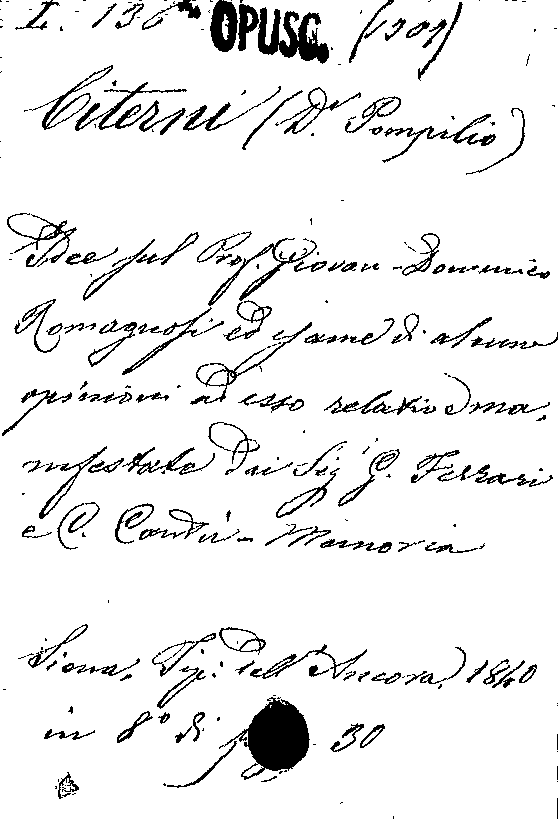 I. 136 OPUSC. (1201)
Citerni (Dr. Pompilio)
Idee sul Prof. Giovan-Domenico
Romagnosi ed esame di alcune
opinioni ad esso relative ma-
nifestate dai Sigi G. Ferrari
e C. Cantù - Memoria
Siena, Tip: dell'Ancora, 1840
in 8º di pag. 30